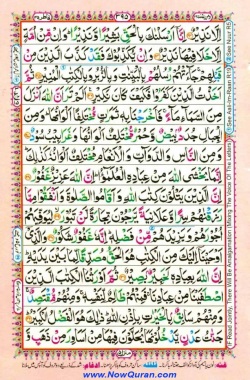 ٣٩٥
اِلَّا نَذِيْرٌ اِنَّاۤ اَرْسَلْنٰكَ بِالْحَقِّ بَشِيْرًا وَّنَذِيْرًا وَاِنْ مِّنْ اُمَّةٍ
اِلَّا خَلَا فِيْهَا نَذِيْرٌ وَاِنْ يُّكَذِّبُوْكَ فَقَدْ كَذَّبَ الَّذِيْنَ مِنْ
قَبْلِهِمْ جَآءَتْهُمْ رُسُلُهُمْ بِالْبَيِّنٰتِ وَبِالزُّبُرِ وَبِالْكِتٰبِ الْمُنِيْرِ ثُمَّ
اَخَذْتُ الَّذِيْنَ كَفَرُوْا فَكَيْفَ كَانَ نَكِيْرِ اَلَمْ تَرَ اَنَّ اللّٰهَ اَنْزَلَ
مِنَ السَّمَآءِ مَآءً فَاَخْرَجْنَا بِهٖ ثَمَرٰتٍ مُّخْتَلِفًا اَلْوَانُهَا وَمِنَ
الْجِبَالِ جُدَدٌۢ بِيْضٌ وَّحُمْرٌ مُّخْتَلِفٌ اَلْوَانُهَا وَغَرَابِيْبُ سُوْدٌ
وَمِنَ النَّاسِ وَالدَّوَآبِّ وَالْاَنْعَامِ مُخْتَلِفٌ اَلْوَانُهٗ كَذٰلِكَ
اِنَّمَا يَخْشَى اللّٰهَ مِنْ عِبَادِهِ الْعُلَمٰٓؤُا اِنَّ اللّٰهَ عَزِيْزٌ غَفُوْرٌ
اِنَّ الَّذِيْنَ يَتْلُوْنَ كِتٰبَ اللّٰهِ وَاَقَامُوا الصَّلٰوةَ وَاَنْفَقُوْا مِمَّا
رَزَقْنٰهُمْ سِرًّا وَّعَلَانِيَةً يَّرْجُوْنَ تِجَارَةً لَّنْ تَبُوْرَ لِيُوَفِّيَهُمْ
اُجُوْرَهُمْ وَيَزِيْدَهُمْ مِّنْ فَضْلِهٖ اِنَّهٗ غَفُوْرٌ شَكُوْرٌ وَالَّذِيْۤ
اَوْحَيْنَاۤ اِلَيْكَ مِنَ الْكِتٰبِ هُوَ الْحَقُّ مُصَدِّقًا لِّمَا بَيْنَ يَدَيْهِ
اِنَّ اللّٰهَ بِعِبَادِهٖ لَخَبِيْرٌۢ بَصِيْرٌ ثُمَّ اَوْرَثْنَا الْكِتٰبَ الَّذِيْنَ
اصْطَفَيْنَا مِنْ عِبَادِنَا فَمِنْهُمْ ظَالِمٌ لِّنَفْسِهٖ وَمِنْهُمْ مُّقْتَصِدٌ وَمِنْهُمْ
سَابِقٌۢ بِالْخَيْرٰتِ بِاِذْنِ اللّٰهِ ذٰلِكَ هُوَ الْفَضْلُ الْكَبِيْرُ
جَنّٰتُ عَدْنٍ يَّدْخُلُوْنَهَا يُحَلَّوْنَ فِيْهَا مِنْ اَسَاوِرَ مِنْ ذَهَبٍ وَّ
www.NowQuran.com